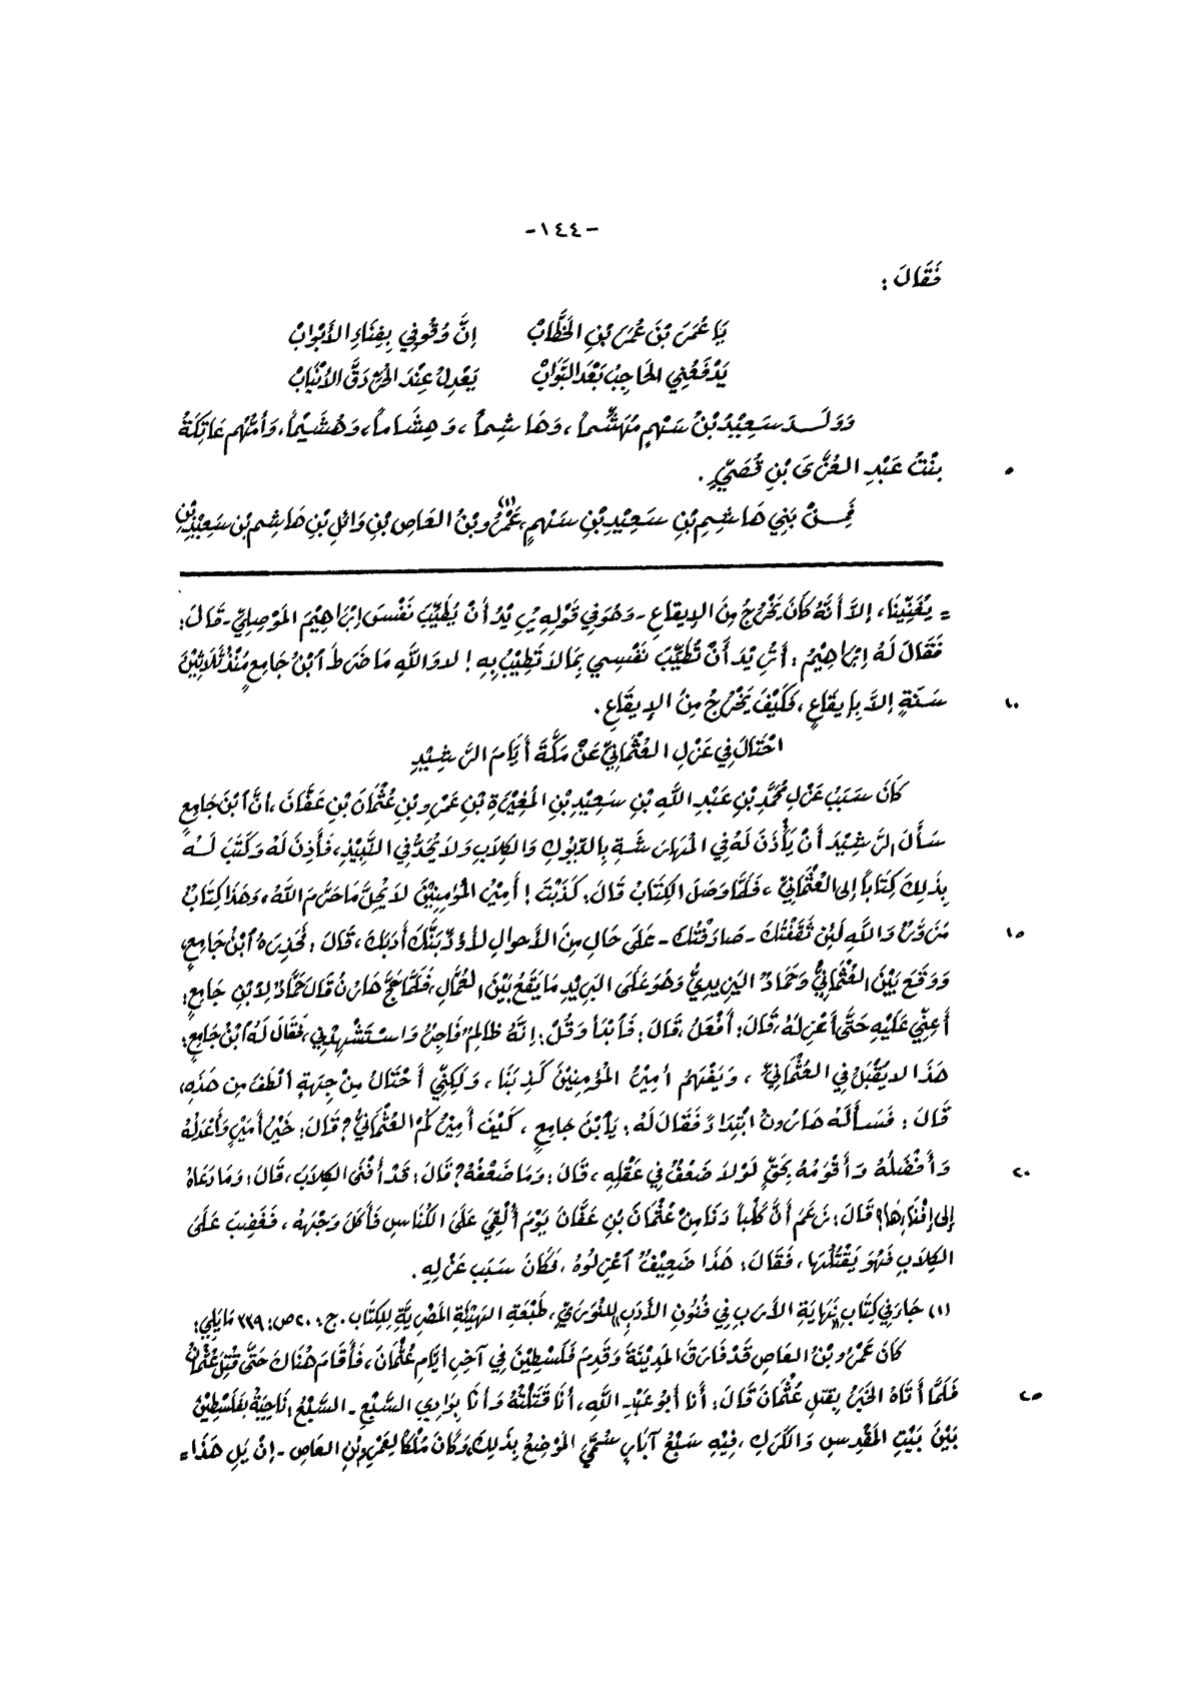 -١٤٤-
فَقَالَ :
يَا عُمَرَ بْنَ عُمَرَ بْنِ الخَطَّابْ    إِنَّ وُقُوفِي بِفِنَاءِ الأَبْوَابْ
يَدْفَعُنِي الحَاجِبُ بَعْدَ البَوَّابْ    يَعْدِلُ عِنْدَ الحُرِّ دَقَّ الأَنْيَابْ
وَوَلَـدَ سَعِيْدُ بْنُ سَهْمٍ مُهَشِّماً ، وَهَاشِماً ، وَهِشَاماً ، وَهُشَيْماً ، وَأُمُّهُم عَاتِكَةُ
بِنْتُ عَبْدِ العُزَّى بْنِ قُصَيٍّ .
٥
فَمِـنْ بَنِي هَاشِمِ بْنِ سَعِيْدِ بْنِ سَهْمٍ ، عَمْرُو (١) بْنُ العَاصِ بْنِ وَائِلِ بْنِ هَاشِمِ بْنِ سَعِيْدِ بْنِ
= يُغَنِّيْنَا ، إِلاَّ أَنَّهُ كَانَ يَخْرُجُ مِنَ الإِيقَاعِ - وَهُوَ فِي قَوْلِهِ يُرِيْدُ أَنْ يُطَيِّبَ نَفْسَ إِبْرَاهِيْمَ المَوْصِلِيِّ - قَالَ :
فَقَالَ لَهُ إِبْرَاهِيْمُ : أَتُرِيْدَ أَنْ تُطَيِّبَ نَفْسِي بِمَا لاَ تَطِيْبُ بِهِ ! لاَ وَاللهِ مَا ضَرَطَ ابْنُ جَامِعٍ مُنْذُ ثَلَاثِيْنَ
سَنَةٍ إِلاَّ بِإِيقَاعٍ ، فَكَيْفَ يَخْرُجُ مِنَ الإِيقَاعِ .
١٠
احْتَالَ فِي عَزْلِ العُثْمَانِيِّ عَنْ مَكَّةَ أَيَّامَ الرَّشِيْدِ
كَانَ سَبَبُ عَزْلِ مُحَمَّدِ بْنِ عَبْدِ اللهِ بْنِ سَعِيْدِ بْنِ المُغِيْرَةِ بْنِ عَمْرِو بْنِ عُثْمَانَ بْنِ عَفَّانَ ، أَنَّ ابْنَ جَامِعٍ
سَأَلَ الرَّشِيْدَ أَنْ يَأْذَنَ لَهُ فِي المُهَارَشَةِ بِالدِّيُوكِ وَالكِلَابِ وَلاَ يُحَدُّ فِي النَّبِيْذِ ، فَأَذِنَ لَهُ وَكَتَبَ لَـهُ
بِذَلِكَ كِتَاباً إِلى العُثْمَانِيِّ ، فَلَمَّا وَصَلَ الكِتَابُ قَالَ : كَذَبْتَ ! أَمِيْرُ المُؤْمِنِيْنَ لاَ يُحِلُّ مَا حَرَّمَ اللهُ ، وَهَذَا كِتَابٌ
مُزَوَّرٌ وَاللهِ لَئِن ثَقَفْتُكَ - صَادَفْتُكَ - عَلَى حَالٍ مِنَ الأَحْوَالِ لَأُؤَدِّبَنَّكَ أَدَبَكَ ، قَالَ : فَحَذِرَهُ ابْنُ جَامِعٍ ،
١٥
وَوَقَعَ بَيْنَ العُثْمَانِيِّ وَحَمَّادٌ اليَزِيدِيُّ وَهُوَ عَلَى البَرِيْدِ مَا يَقَعُ بَيْنَ العُمَّالِ ، فَلَمَّا حَجَّ هَارُنُ قَالَ حَمَّادٌ لِابْنِ جَامِعٍ :
أَعِنِّي عَلَيْهِ حَتَّى أَعْزِلَهُ ، قَالَ : أَفْعَلُ ، قَالَ : فَابْدَأْ وَقُلْ : إِنَّهُ ظَالِمٌ فَاجِرٌ وَاسْتَشْهِدْنِي ، فَقَالَ لَهُ ابْنُ جَامِعٍ :
هَذَا لاَ يُقْبَلُ فِي العُثْمَانِيِّ ، وَيَفْهَمُ أَمِيْرُ المُؤْمِنِيْنَ كَذِبَنَا ، وَلَكِنِّي أَحْتَالُ مِنْ جِهَةٍ أَلْطَفَ مِن هَذِهِ ،
قَالَ : فَسَأَلَهُ هَارُونُ ابْتِدَاءً فَقَالَ لَهُ : يَا ابْنَ جَامِعٍ ، كَيْفَ أَمِيْرُكُمْ العُثْمَانِيُّ ؟ قَالَ : خَيْرُ أَمِيْرٍ وَأَعْدَلُهُ
وَأَفْضَلُهُ وَأَقْوَمُهُ بِحَقٍّ لَوْلاَ ضَعْفٌ فِي عَقْلِهِ ، قَالَ : وَمَا ضَعْفُهُ ؟ قَالَ : قَدْ أَفْنَى الكِلَابَ ، قَالَ : وَمَا دَعَاهُ
٢٠
إِلى إِفْنَائِهَا ؟ قَالَ : زَعَمَ أَنَّ كَلْباً دَنَا مِنْ عُثْمَانَ بْنِ عَفَّانَ يَوْمَ أُلْقِيَ عَلَى الكُنَاسِ فَأَكَلَ وَجْهَهُ ، فَغَضِبَ عَلَى
الكِلَابِ فَهُوَ يَقْتُلُهَا ، فَقَالَ : هَذَا ضَعِيْفٌ اعْزِلُوهُ ، فَكَانَ سَبَبَ عَزْلِهِ .
(١) جَاءَ فِي كِتَابِ نِهَايَةِ الأَرَبِ فِي فُنُونِ الأَدَبِ لِلنُّوَيْرِيِّ ، طَبْعَةِ الهَيْئَةِ المَصْرِيَّةِ لِلكِتَاب . ج : ٢٠ ص : ٢٣٩ مَا يَلِي :
كَانَ عَمْرُو بْنُ العَاصِ قَدْ فَارَقَ المَدِيْنَةَ وَقَدِمَ فَلَسْطِيْنَ فِي آخِرِ أَيَّامِ عُثْمَانَ ، فَأَقَامَ هُنَاكَ حَتَّى قُتِلَ عُثْمَانُ
فَلَمَّا أَتَاهُ الخَبَرُ بِقَتلِ عُثْمَانَ قَالَ : أَنَا أَبُو عَبْدِ اللهِ ، أَنَا قَتَلْتُهُ وَأَنَا بِوَادِي السَّبْعِ - السَّبْعُ : نَاحِيَةٌ بِفَلَسْطِيْنَ
٢٥
بَيْنَ بَيْتِ المَقْدِسِ وَالكَرَكِ ، فِيْهِ سَبْعُ آبَارٍ سُمِّيَ المَوْضِعُ بِذَلِكَ ، وَكَانَ مُلْكاً لِعَمْرِو بْنِ العَاصِ - إِنْ يَلِ هَذَا =